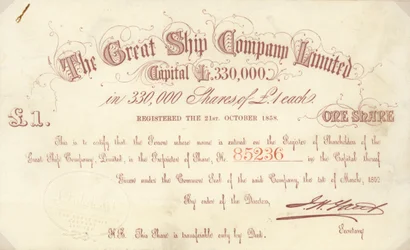 The Great Ship Company Limited
Capital £.330,000.
in 330,000 Shares of £.1 each.
REGISTERED THE 21st. OCTOBER 1858.
£1. ONE SHARE
This is to certify that the Person whose name is entered on the Register of Shareholders of the
Great Ship Company, Limited, is the Proprietor of Share, No. 85236 in the Capital thereof
Given under the Common Seal of the said Company, the 1st of March, 1859
By order of the Directors,
Secretary
N.B. This Share is transferable only by Deed.